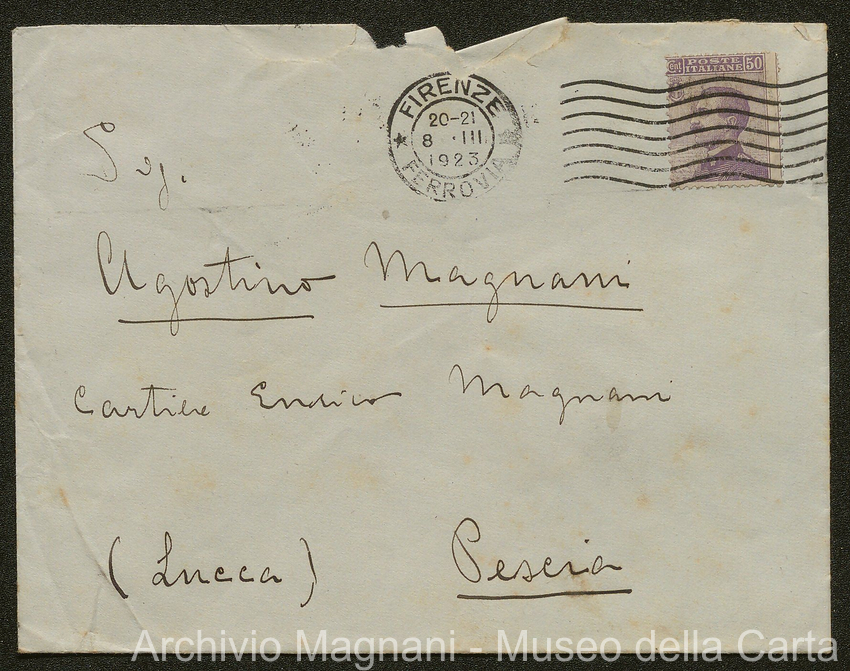 FIRENZE
20-21
8 · III
1923
FERROVIA
POSTE
ITALIANE 50
Sig.
Agostino Magnani
Cartiere Enrico Magnani
(Lucca) Pescia
Archivio Magnani - Museo della Carta